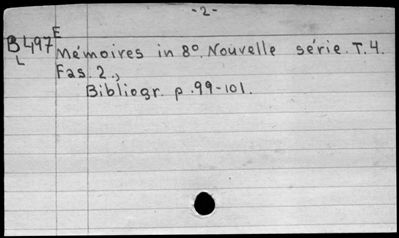 -2-
E
B497 Mémoires in 8°. Nouvelle série. T. 4.
L
Fas. 2.,
Bibliogr. p. 99-101.